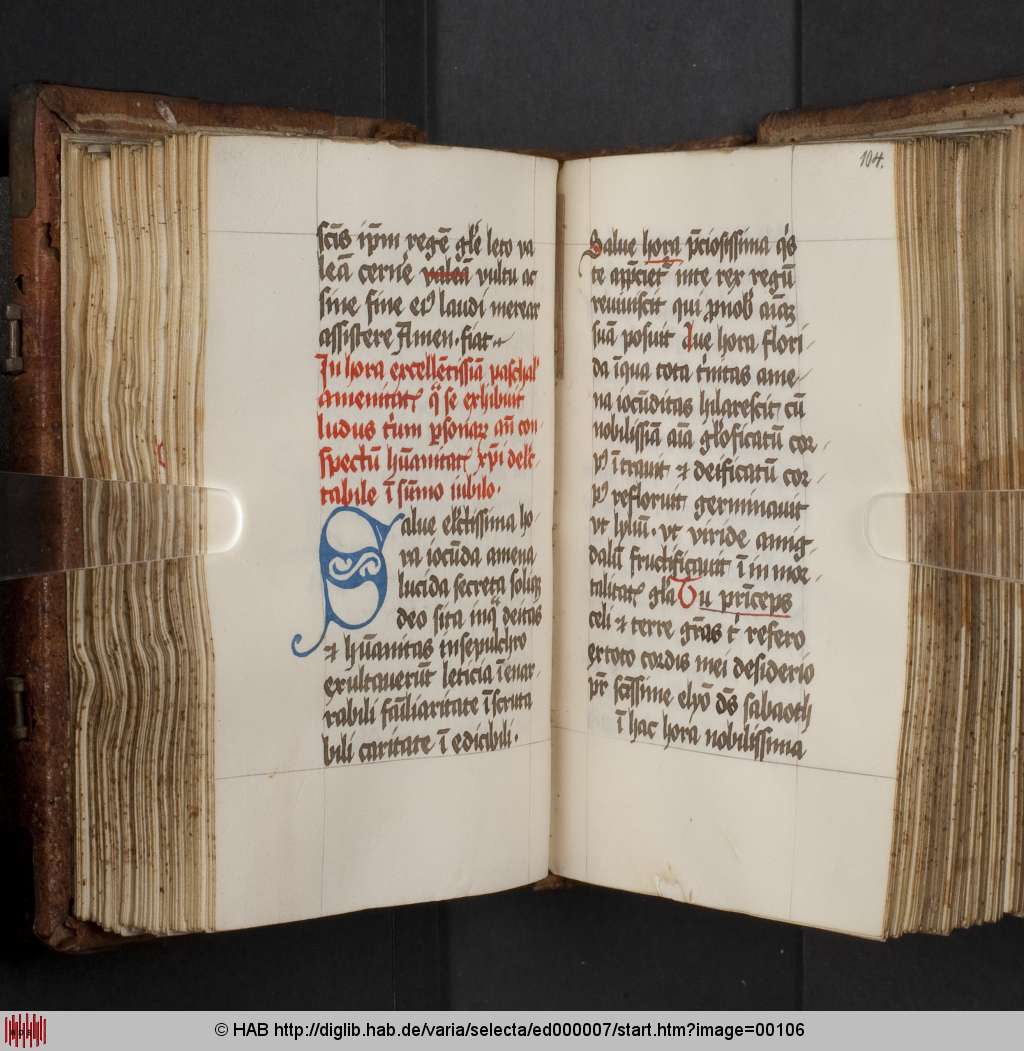 sct̄s ip̄m regē gl̄e leto va
leā cerne᷑ valeā vultu ac
sine fine eiꝰ laudi merear
assistere Amen · fiat
In hora excellētissiā paschal᷑
amenitatꝭ q̄ se exhibuit
ludus t᷑um ꝑsonaꝝ an̄ con-
spectū hūanitatꝭ xp̄i delc̄-
tabile ī sūmo iubilo ·
Salue elc̄tissima ho-
ra iocūda amena
lucida secreta soliꝝ
deo sita inq̄ deitas
⁊ hūanitas insepulchro
exultauerūt leticia ī enar-
rabili fam̄liaritate īscruta
bili caritate ī edicibili ·
104.
Salue hora p̄ciosissima
te
rex regū
reuiuiscit qui ꝓnob᷑ aīaꝫ
suā posuit Aue hora flori-
da īqua tota t᷑nitas ame-
na iocūditas hilarescit cū
nobilissiā aīa gl̄oficatū cor-
pꝰ ītrauit ⁊ deificatū cor-
pꝰ refloruit germinauit
vt lyliū · vt viride amig-
dalū fructificauit ī inmor-
talitatꝭ gl̄a Tu p̄nceps
celi ⁊ terre gr̄as t᷑ refero
extoto cordis mei desiderio
pr̄ sct̄issime elyō dn̄s sabaoth
ī hac hora nobilissima
© HAB http://diglib.hab.de/varia/selecta/ed000007/start.htm?image=00106